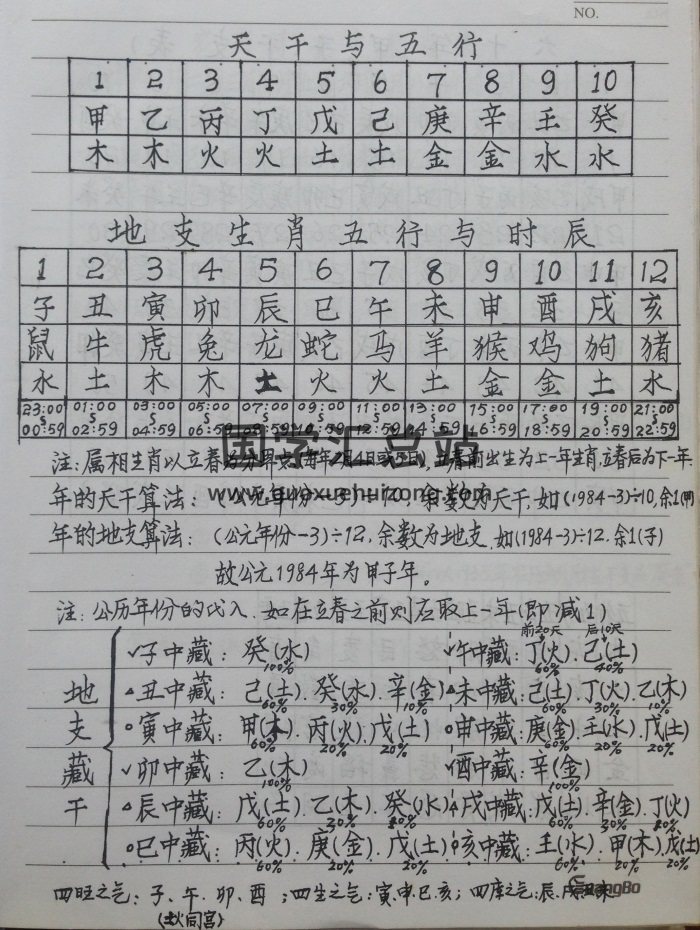 NO.
天干与五行
1 2 3 4 5 6 7 8 9 10
甲 乙 丙 丁 戊 己 庚 辛 壬 癸
木 木 火 火 土 土 金 金 水 水
地支生肖五行与时辰
1 2 3 4 5 6 7 8 9 10 11 12
子 丑 寅 卯 辰 巳 午 未 申 酉 戌 亥
鼠 牛 虎 兔 龙 蛇 马 羊 猴 鸡 狗 猪
水 土 木 木 土 火 火 土 金 金 土 水
23:00 01:00 03:00 05:00 07:00 09:00 11:00 13:00 15:00 17:00 19:00 21:00
00:59 02:59 04:59 06:59 08:59 10:59 12:59 14:59 16:59 18:59 20:59 22:59
国学汇总站
注:属相生肖以立春为分界点(每年2月4日或5日),立春前出生为上一年生肖,立春后为下一年
www.guoxuehuizong.com
年的天干算法:(公元年份-3)÷10,余数为天干,如(1984-3)÷10,余1(甲)
年的地支算法:(公元年份-3)÷12,余数为地支,如(1984-3)÷12.余1(子)
故公元1984年为甲子年。
注:公历年份的代入.如在立春之前则应取上一年(即减1)
前20天 后10天
子中藏:癸(水) 午中藏:丁(火).己(土)
100% 60% 40%
丑中藏:己(土).癸(水).辛(金) 未中藏:己(土).丁(火).乙(木)
60% 30% 10% 60% 30% 10%
寅中藏:甲(木).丙(火).戊(土) 申中藏:庚(金).壬(水).戊(土)
60% 20% 20% 60% 20% 20%
卯中藏:乙(木) 酉中藏:辛(金)
100% 100%
辰中藏:戊(土).乙(木).癸(水) 戌中藏:戊(土).辛(金).丁(火)
60% 60% 30%
巳中藏:丙(火).庚(金).戊(土) 亥中藏:壬(水).甲(木).戊(土)
60% 20% 20% 60% 20% 20%
地支藏干
四旺之气:子、午、卯、酉;四生之气:寅.申.巳.亥;四库之气:辰.戌.丑.未
GuangBo
火同宫)